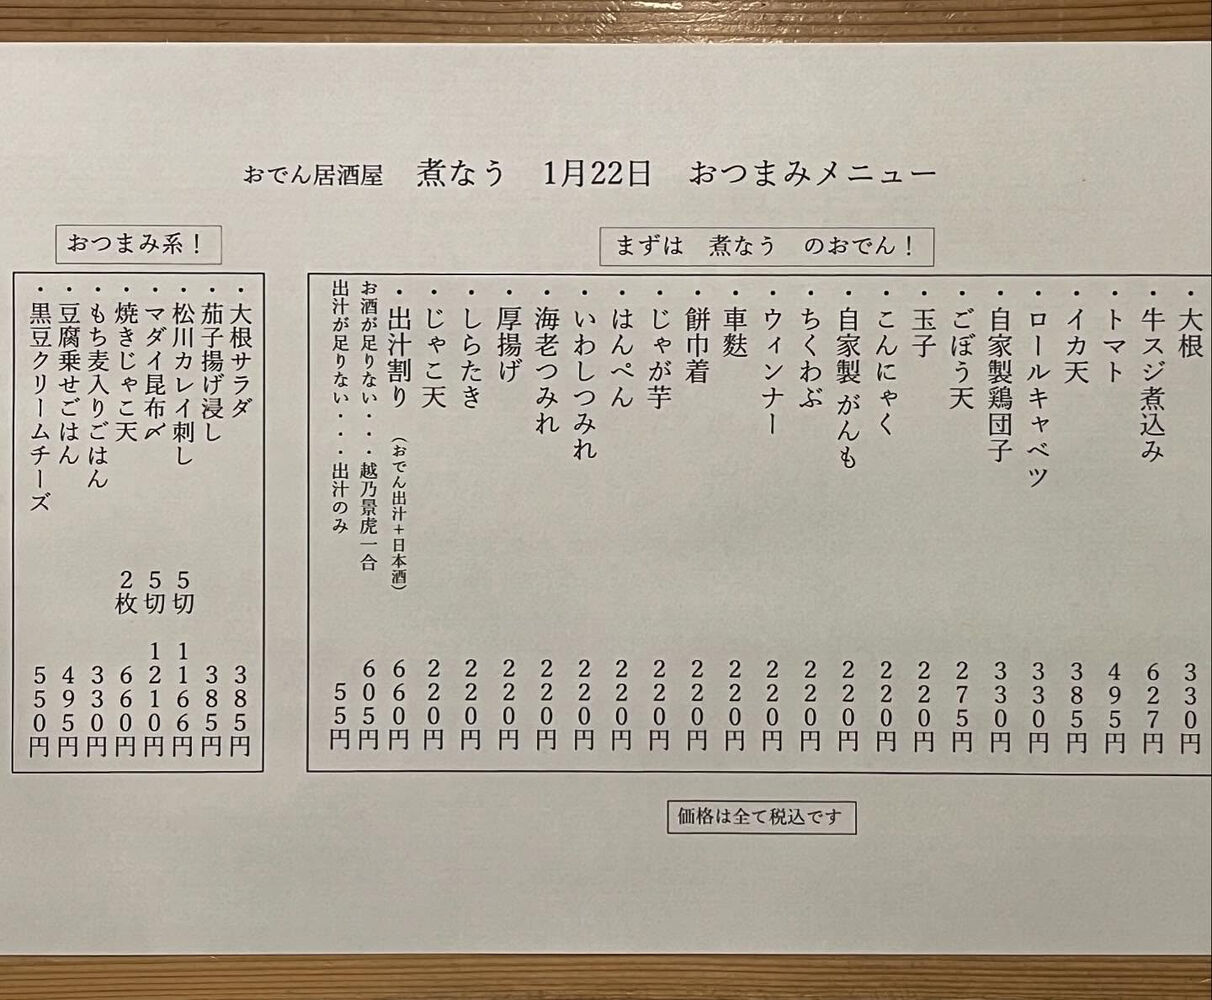 おでん居酒屋　煮なう　1月22日　おつまみメニュー
まずは　煮なう　のおでん！
・大根　330円
・牛スジ煮込み　627円
・トマト　495円
・イカ天　385円
・ロールキャベツ　330円
・自家製鶏団子　330円
・ごぼう天　275円
・玉子　220円
・こんにゃく　220円
・自家製がんも　220円
・ちくわぶ　220円
・ウィンナー　220円
・車麩　220円
・餅巾着　220円
・じゃが芋　220円
・はんぺん　220円
・いわしつみれ　220円
・海老つみれ　220円
・厚揚げ　220円
・しらたき　220円
・じゃこ天　220円
・出汁割り　（おでん出汁+日本酒）　660円
お酒が足りない・・・越乃景虎一合　605円
出汁が足りない・・・出汁のみ　55円
おつまみ系！
・大根サラダ　385円
・茄子揚げ浸し　385円
・松川カレイ刺し　5切　1166円
・マダイ昆布〆　5切　1210円
・焼きじゃこ天　2枚　660円
・もち麦入りごはん　330円
・豆腐乗せごはん　495円
・黒豆クリームチーズ　550円
価格は全て税込です